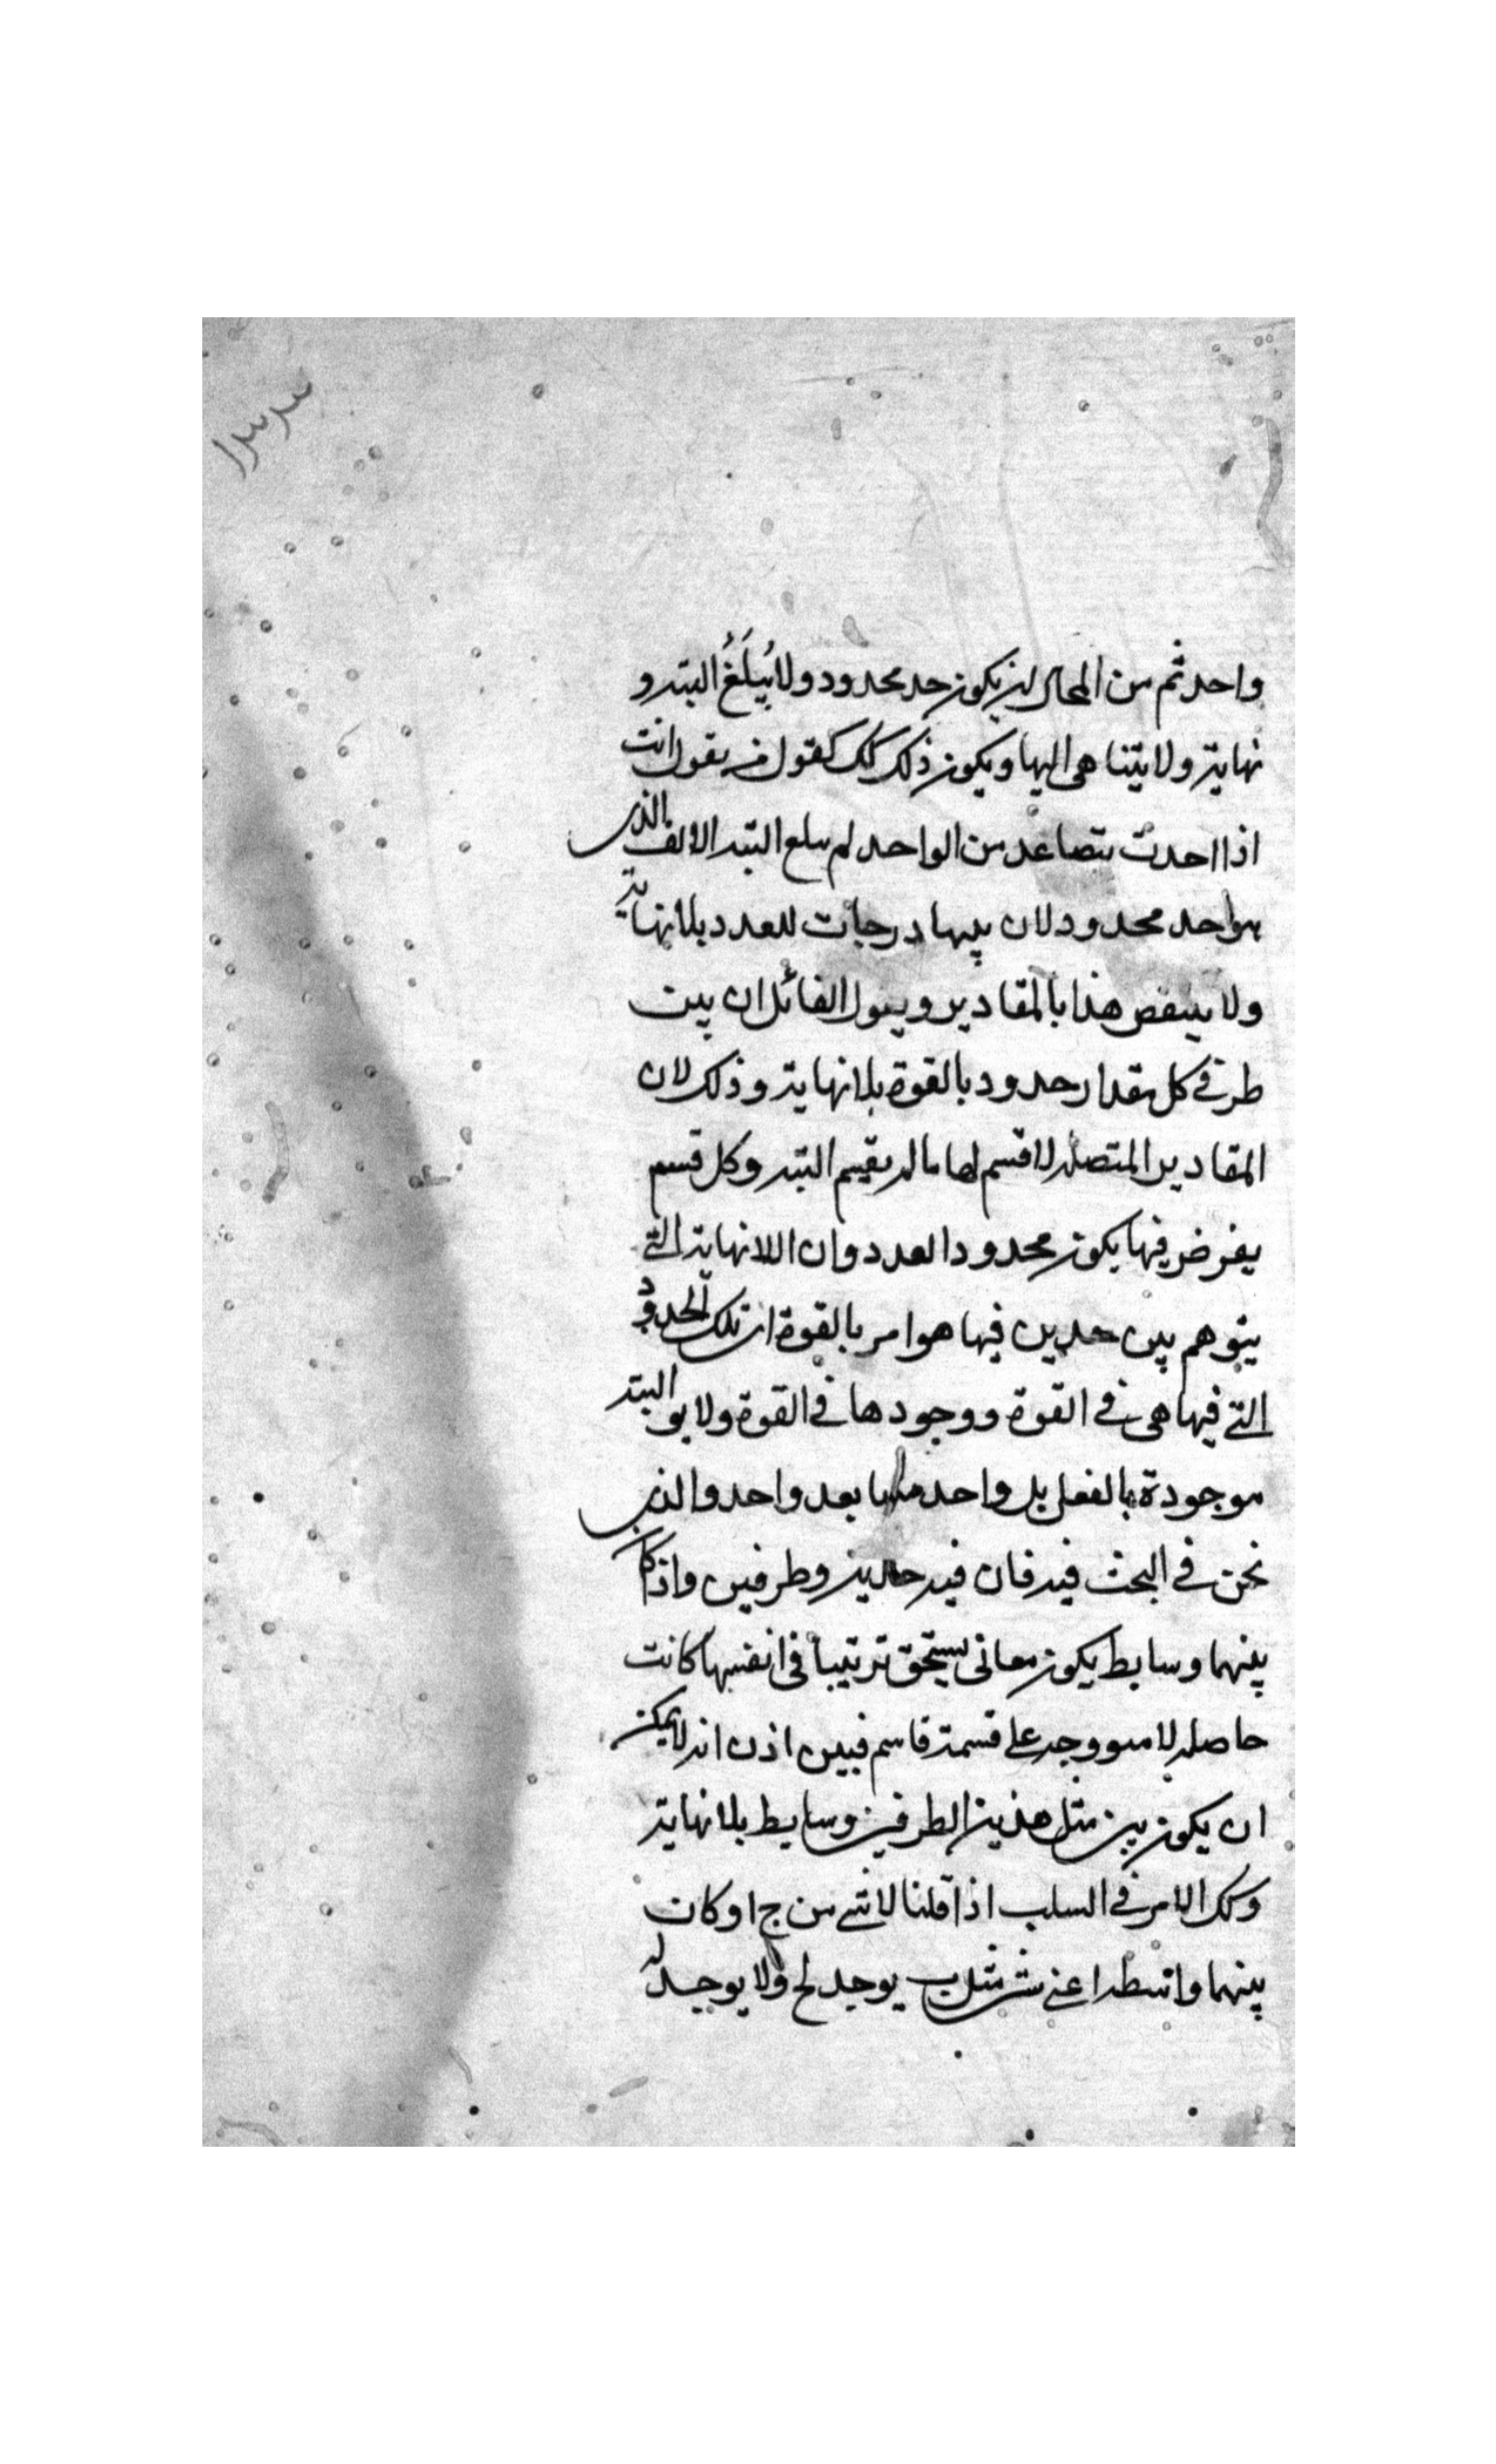 واحد ثم من المحال ان يكون حد محدود ولا يُبلَغُ البته و
نهاية ولا يتناهى اليها ويكون ذلك كلك كقول من يقول انت
اذا احدت تتصاعد من الواحد لم يبلع البته الالف الذي
هو احد محدود لان بينها درجات للعدد بلا نهاية
ولا ينتقض هذا بالمقادير ويقول القائل ان بين
طرفي كل مقدار حدود بالقوة بلا نهاية وذلك لان
المقادير المتصله لا قسم لها ما لم يقسم البته وكل قسم
يفرض فيها يكون محدود العدد وان اللانهاية التي
يتوهم بين حدين فيها هو امر بالقوة ان تلك الحدود
التي فيها هى في القوة ووجودها في القوة ولا البته
موجودة بالفعل بل واحد منها بعد واحد والذي
نحن في البحث فيه فان فيه حدين وطرفين واذا كا
بينهما وسايط يكون معانى يستحق ترتيبا في انفسها كانت
حاصله لا على قسمة قاسم فبين اذن انه لا يمكن
ان يكون بين مثل هذين الطرفين وسايط بلا نهاية
وكك الامر في السلب اذا قلنا لا شي من ج ا وكان
بينهما واسطه اعني شي مثل ب يوجد لج ولا يوجد له